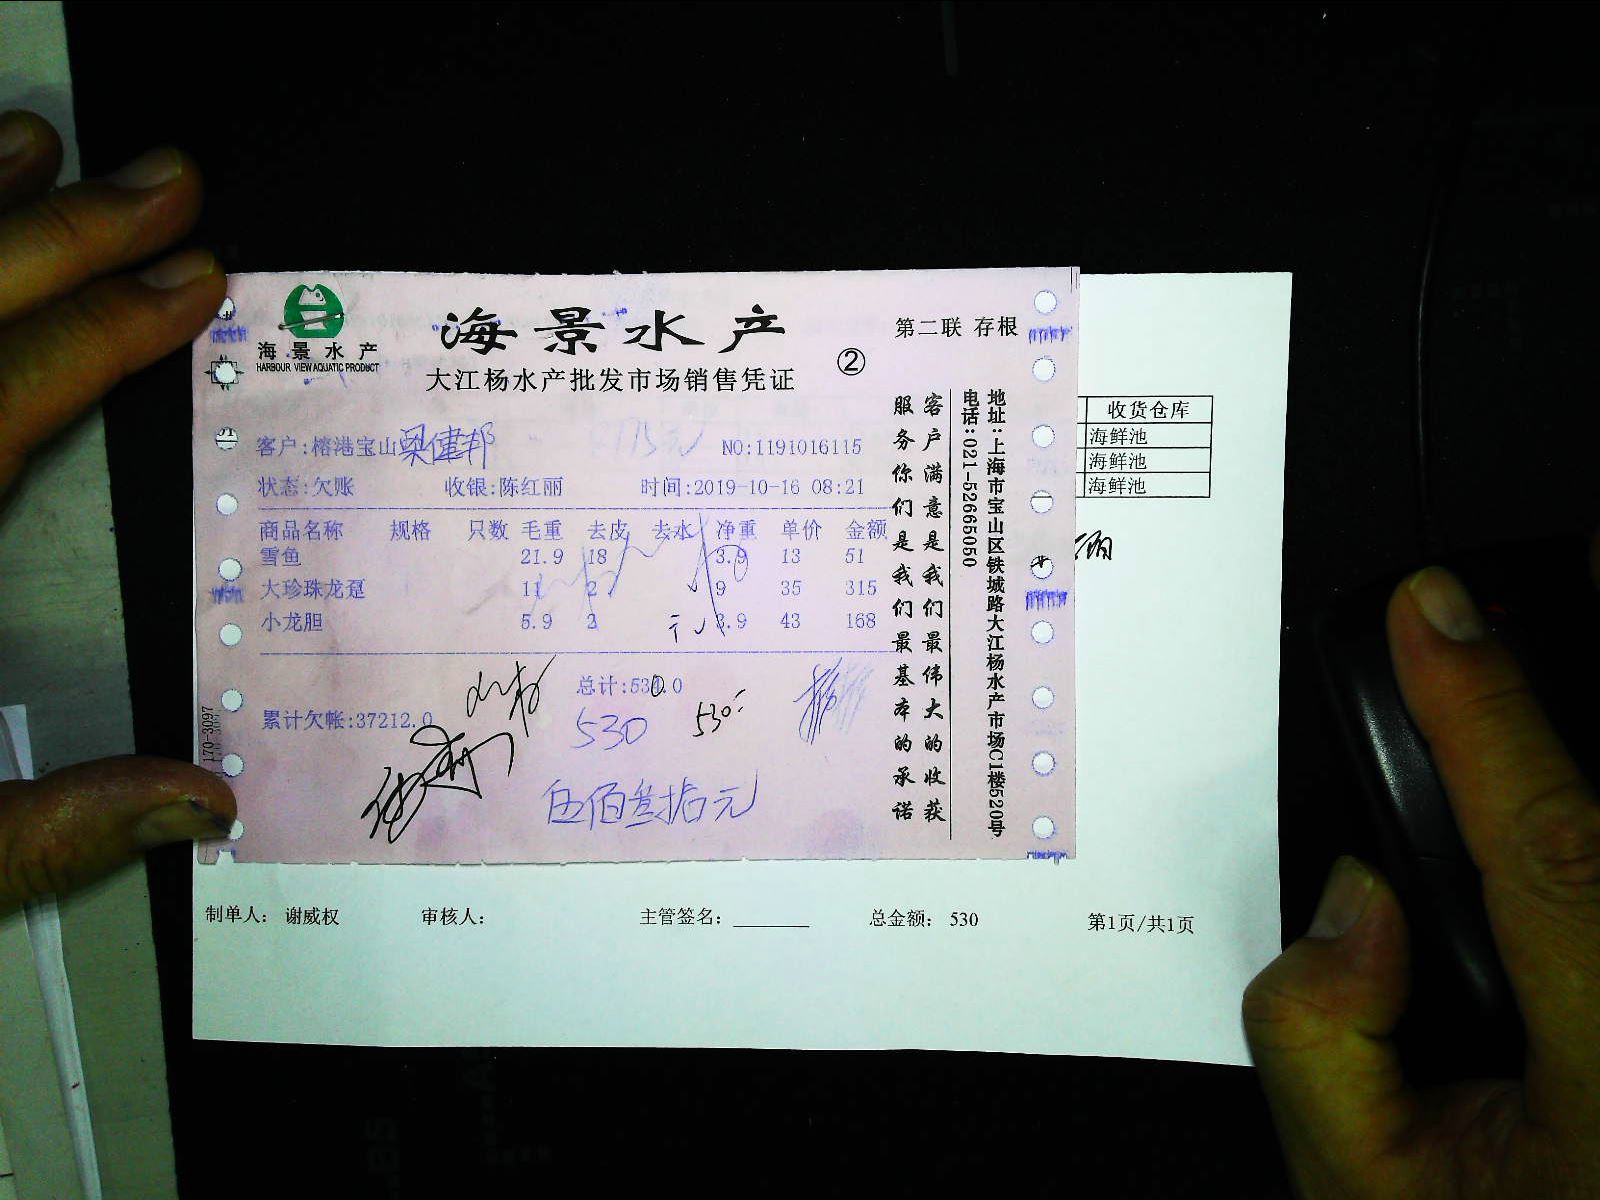 海景水产
HARBOUR VIEW AQUATIC PRODUCT
海景水产
大江杨水产批发市场销售凭证
②
第二联 存根
客户:榕港宝山梁健邦
NO:1191016115
状态:欠账 收银:陈红丽 时间:2019-10-16 08:21
商品名称 规格 只数 毛重 去皮 去水 净重 单价 金额
雪鱼 21.9 18 3.9 13 51
大珍珠龙趸 11 2 9 35 315
小龙胆 5.9 2 3.9 43 168
总计:534.0
累计欠帐:37212.0
530
530
伍佰叁拾元
客户满意是我们最伟大的收获
服务你们是我们最基本的承诺
地址:上海市宝山区铁城路大江杨水产市场C1楼520号
电话:021-52665050
170-3097
收货仓库
海鲜池
海鲜池
海鲜池
制单人: 谢威权 审核人: 主管签名: 总金额: 530 第1页/共1页